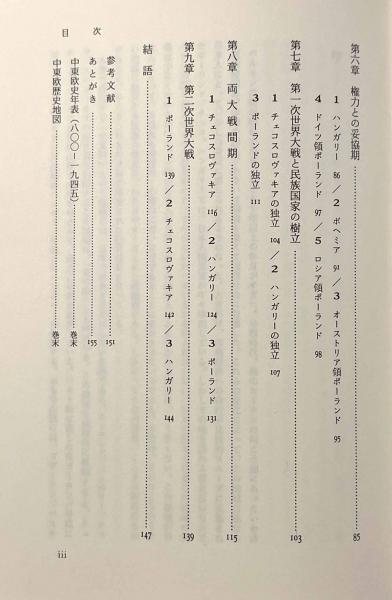 目次
第六章 権力との妥協期……85
1 ハンガリー 86／2 ボヘミア 91／3 オーストリア領ポーランド 95
4 ドイツ領ポーランド 97／5 ロシア領ポーランド 98
第七章 第一次世界大戦と民族国家の樹立……103
1 チェコスロヴァキアの独立 104／2 ハンガリーの独立 107
3 ポーランドの独立 111
第八章 両大戦間期……115
1 チェコスロヴァキア 116／2 ハンガリー 124／3 ポーランド 131
第九章 第二次世界大戦……139
1 ポーランド 139／2 チェコスロヴァキア 142／3 ハンガリー 144
結語……147
参考文献……151
あとがき……155
中東欧史年表（八〇〇―一九四五）……巻末
中東欧歴史地図……巻末
iii